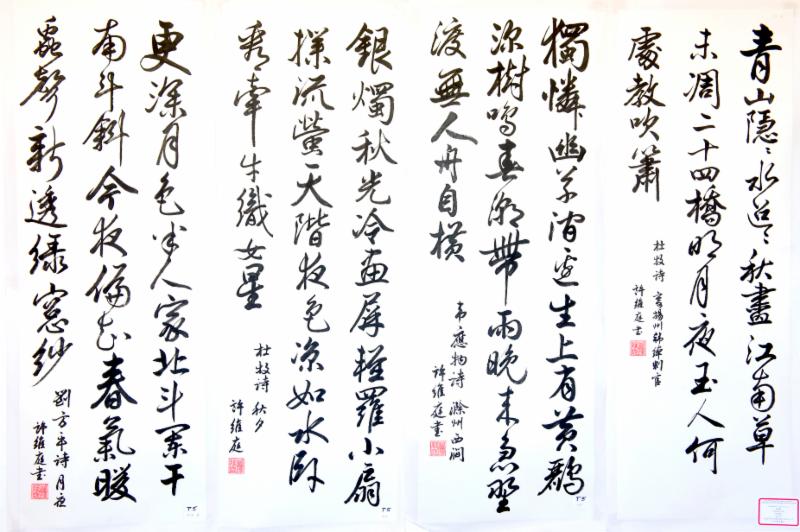 青山隱〻水迢〻秋盡江南草
未凋二十四橋明月夜玉人何
處教吹簫
杜牧诗 寄揚州韩綽判官
許維庭书
獨憐幽草澗邊生上有黄鸝
深樹鳴春潮帶雨晚来急野
渡無人舟自横
韦應物诗 滁州西澗
許維庭書
T5
銀燭秋光冷画屏輕羅小扇
撲流螢天階夜色凉如水卧
看牽牛織女星
杜牧诗 秋夕
許維庭
T5
更深月色半人家北斗闌干
南斗斜今夜偏知春氣暖
蟲聲新透緑窓紗
劉方平诗 月夜
許維庭书
T5